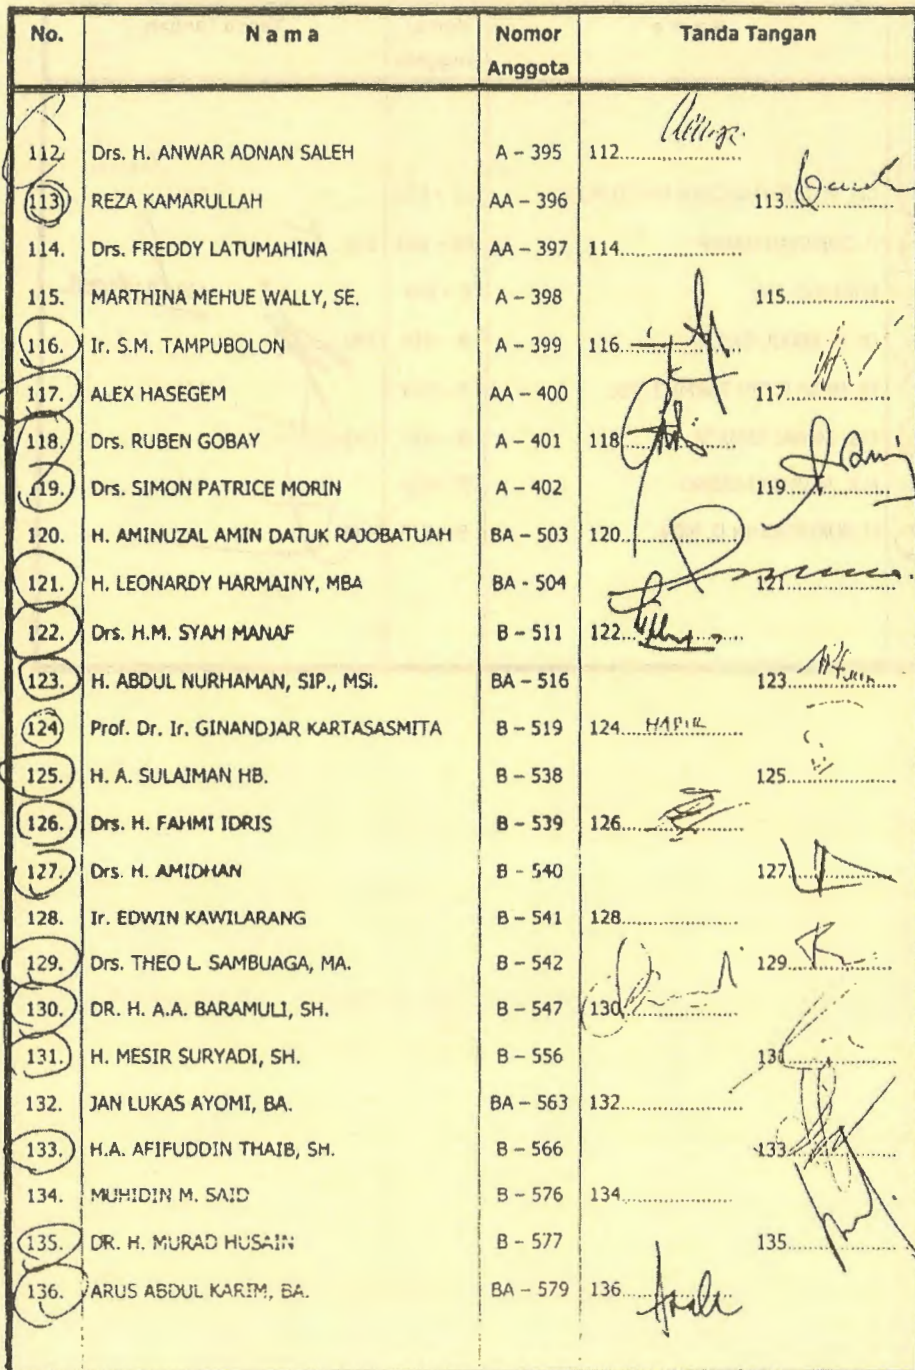 No. Nama Nomor Anggota Tanda Tangan
112. Drs. H. ANWAR ADNAN SALEH A - 395 112
113 REZA KAMARULLAH AA - 396 113
114. Drs. FREDDY LATUMAHINA AA - 397 114
115. MARTHINA MEHUE WALLY, SE. A - 398 115
116. Ir. S.M. TAMPUBOLON A - 399 116
117. ALEX HASEGEM AA - 400 117
118. Drs. RUBEN GOBAY A - 401 118
119. Drs. SIMON PATRICE MORIN A - 402 119
120. H. AMINUZAL AMIN DATUK RAJOBATUAH BA - 503 120
121. H. LEONARDY HARMAINY, MBA BA - 504 121
122. Drs. H.M. SYAH MANAF B - 511 122
123. H. ABDUL NURHAMAN, SIP., MSi. BA - 516 123
124 Prof. Dr. Ir. GINANDJAR KARTASASMITA B - 519 124 HADIR
125. H. A. SULAIMAN HB. B - 538 125
126. Drs. H. FAHMI IDRIS B - 539 126
127. Drs. H. AMIDHAN B - 540 127
128. Ir. EDWIN KAWILARANG B - 541 128
129. Drs. THEO L. SAMBUAGA, MA. B - 542 129
130. DR. H. A.A. BARAMULI, SH. B - 547 130
131. H. MESIR SURYADI, SH. B - 556 131
132. JAN LUKAS AYOMI, BA. BA - 563 132
133. H.A. AFIFUDDIN THAIB, SH. B - 566 133
134. MUHIDIN M. SAID B - 576 134
135. DR. H. MURAD HUSAIN B - 577 135
136. ARUS ABDUL KARIM, BA. BA - 579 136